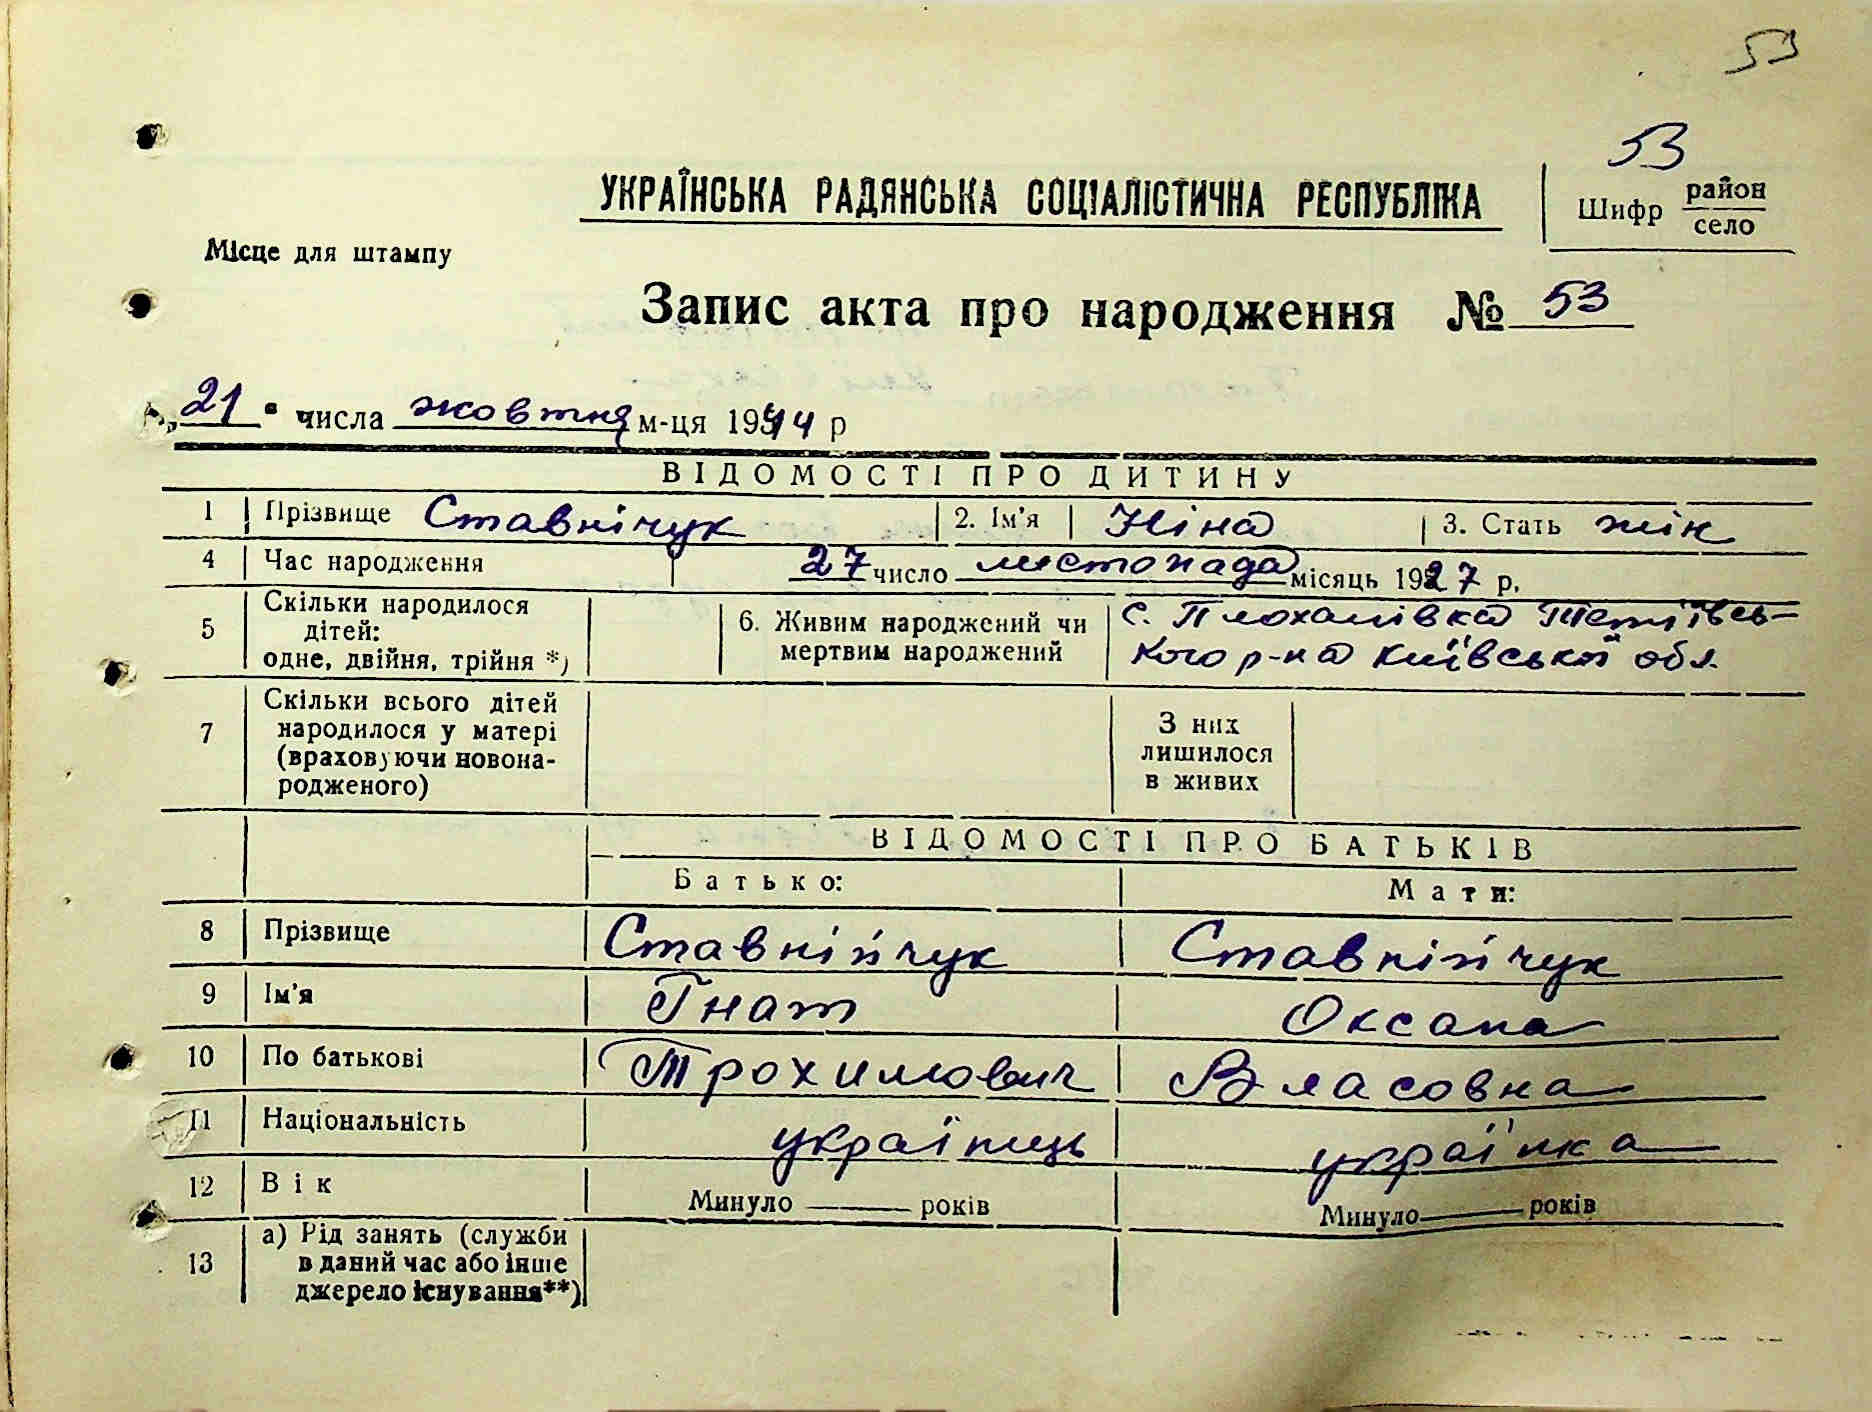 53
53
УКРАЇНСЬКА РАДЯНСЬКА СОЦІАЛІСТИЧНА РЕСПУБЛІКА
Шифр район
село
Місце для штампу
Запис акта про народження № 53
„21" числа жовтня м-ця 1944 р
ВІДОМОСТІ ПРО ДИТИНУ
1 Прізвище Ставнічук 2. Ім'я Ніна 3. Стать жін
4 Час народження 27 число листопада місяць 1927 р.
5 Скільки народилося дітей: одне, двійня, трійня *) 6. Живим народжений чи мертвим народжений с. Плоханівка Тетіївсь-
кого р-на Київської обл.
7 Скільки всього дітей народилося у матері (враховуючи новонародженого) З них лишилося в живих
ВІДОМОСТІ ПРО БАТЬКІВ
Батько: Мати:
8 Прізвище Ставнійчук Ставнійчук
9 Ім'я Гнат Оксана
10 По батькові Трохимович Власовна
11 Національність українець українка
12 Вік Минуло років Минуло років
13 а) Рід занять (служби
в даний час або інше
джерело існування**)